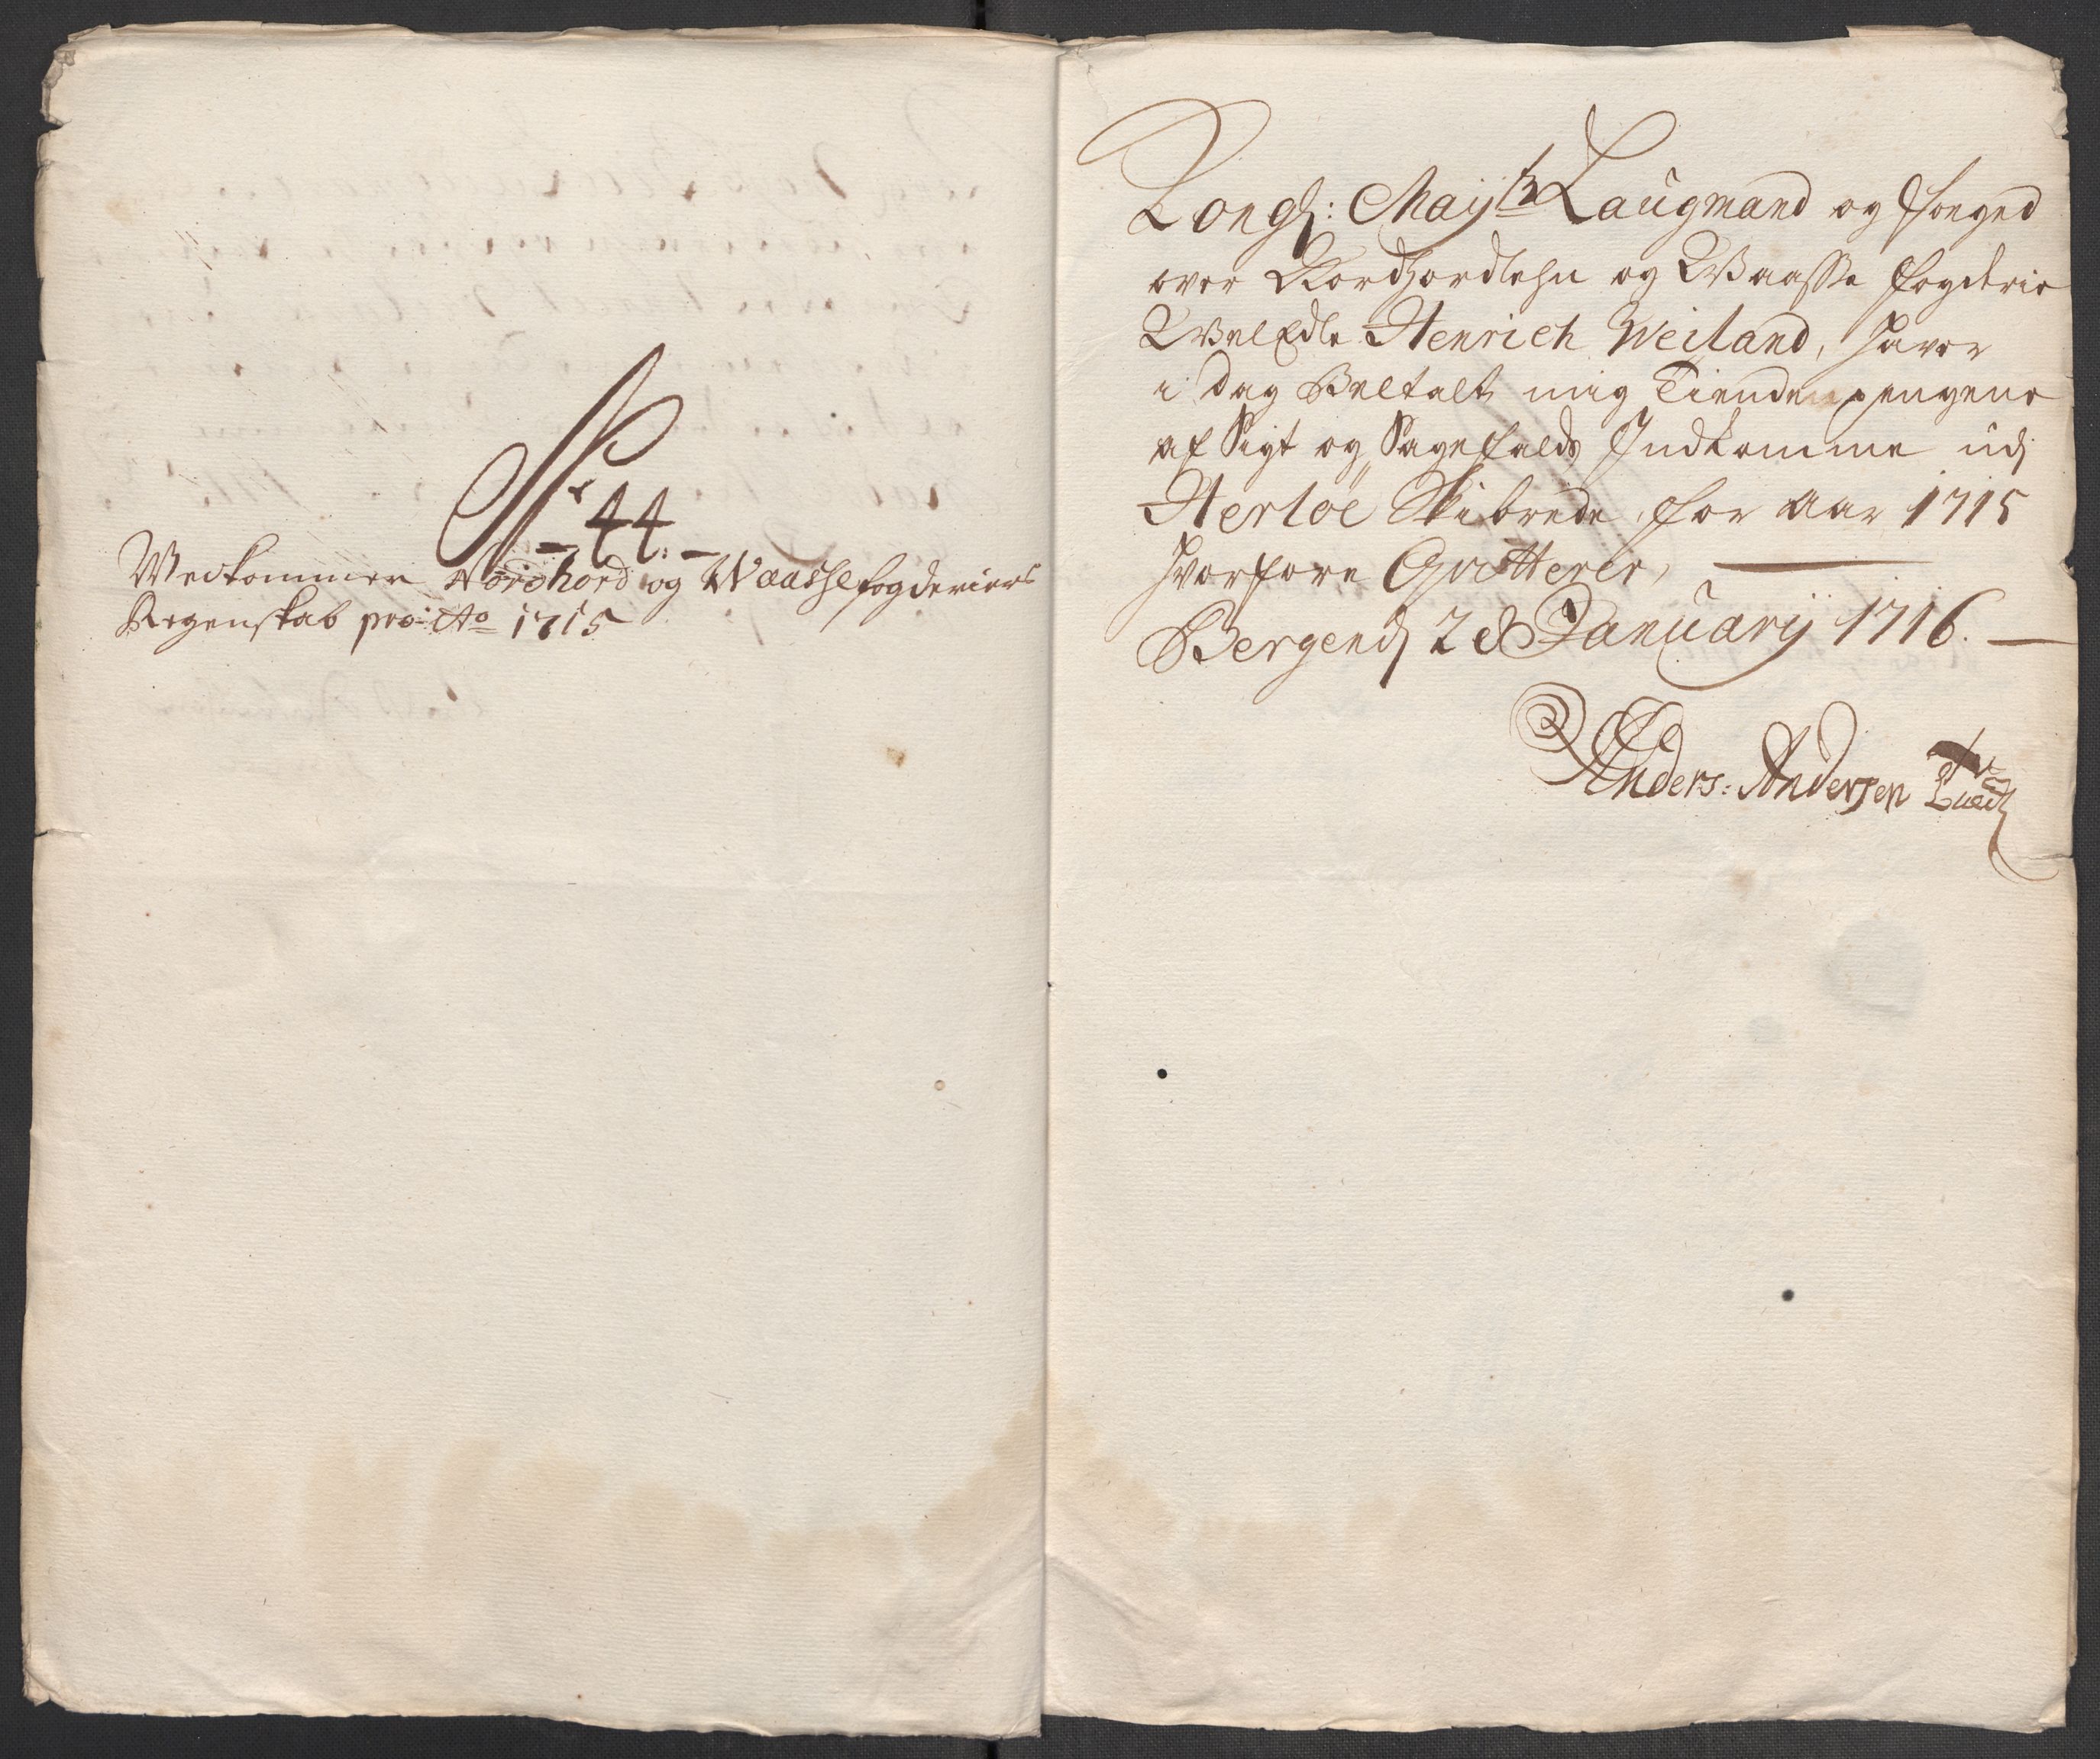 No 44.
Vedkommer Nordhord og Waasse fogderiers
Regenskab pro Ao 1715
Kongl: Mayts Laugmand og foged
over Nordhordlehn og Waasse fogderie
WelEdle Henrich Weiland, haver
i dag Betalt mig Tiende pengene
af Sigt og Sagefalds Indkomme udj
Herloe Skibrede, for aar 1715
hvorfore Qvitterer,
Bergend 28 Januarij 1716.
Anders: Andersen